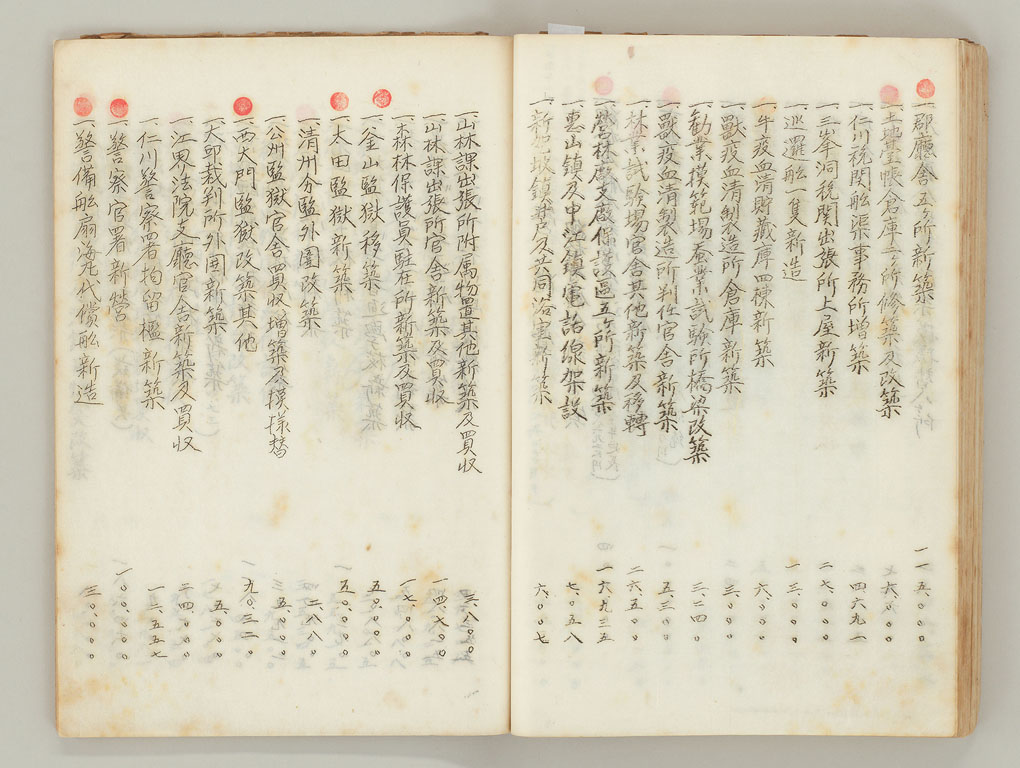 一、郡廳舍五ヶ所新築 一一五、〇〇〇
一、土地臺帳倉庫 修築及改築 六、〇〇〇
一、仁川税関船渠事務所増築 二四、六九一
一、三峯洞税関出張所上屋新築 二、七〇〇
一、巡邏船一隻新造 一三、〇〇〇
一、牛疫血清貯蔵庫四棟新築 六、〇〇〇
一、獸疫血清製造所倉庫新築 三、〇〇〇
一、勧業模範場蚕業試験所橋梁改築 三、二四〇
一、獸疫血清製造所判任官舎新築 五、三〇〇
一、林業試験場官舎其他新築及移轉 二六、五〇〇
一、営林廠支廠保護區五ヶ所新築 一六、九三五
一、惠山鎮及中江鎮電話線架設 七、〇五八
一、新 坡鎮井戸及共同浴室新築 六、〇〇七
山林課出張所附属物置其他新築及買収 三、八〇〇
一、山林課出張所官舎新築及買収 一四、七〇〇
一、森林保護員駐在所新築及買収 一七、〇〇〇
一、釜山監獄移築 五〇、〇〇〇
一、大田監獄新築 五〇、〇〇〇
一、清州分監外圍改築 二、八八〇
一、公州監獄官舎買収増築及模様替 五、〇〇〇
一、西大門監獄改築其他 九〇、三二〇
一、大邱裁判所外囲新築 五、〇〇〇
一、江界法院支廳官舎新築及買収 二四、〇〇〇
一、仁川警察署拘留檻新築 一三、五五七
一、警察官署新營 一〇〇、〇〇〇
一、警備船扇海丸代償船新造 三〇、〇〇〇